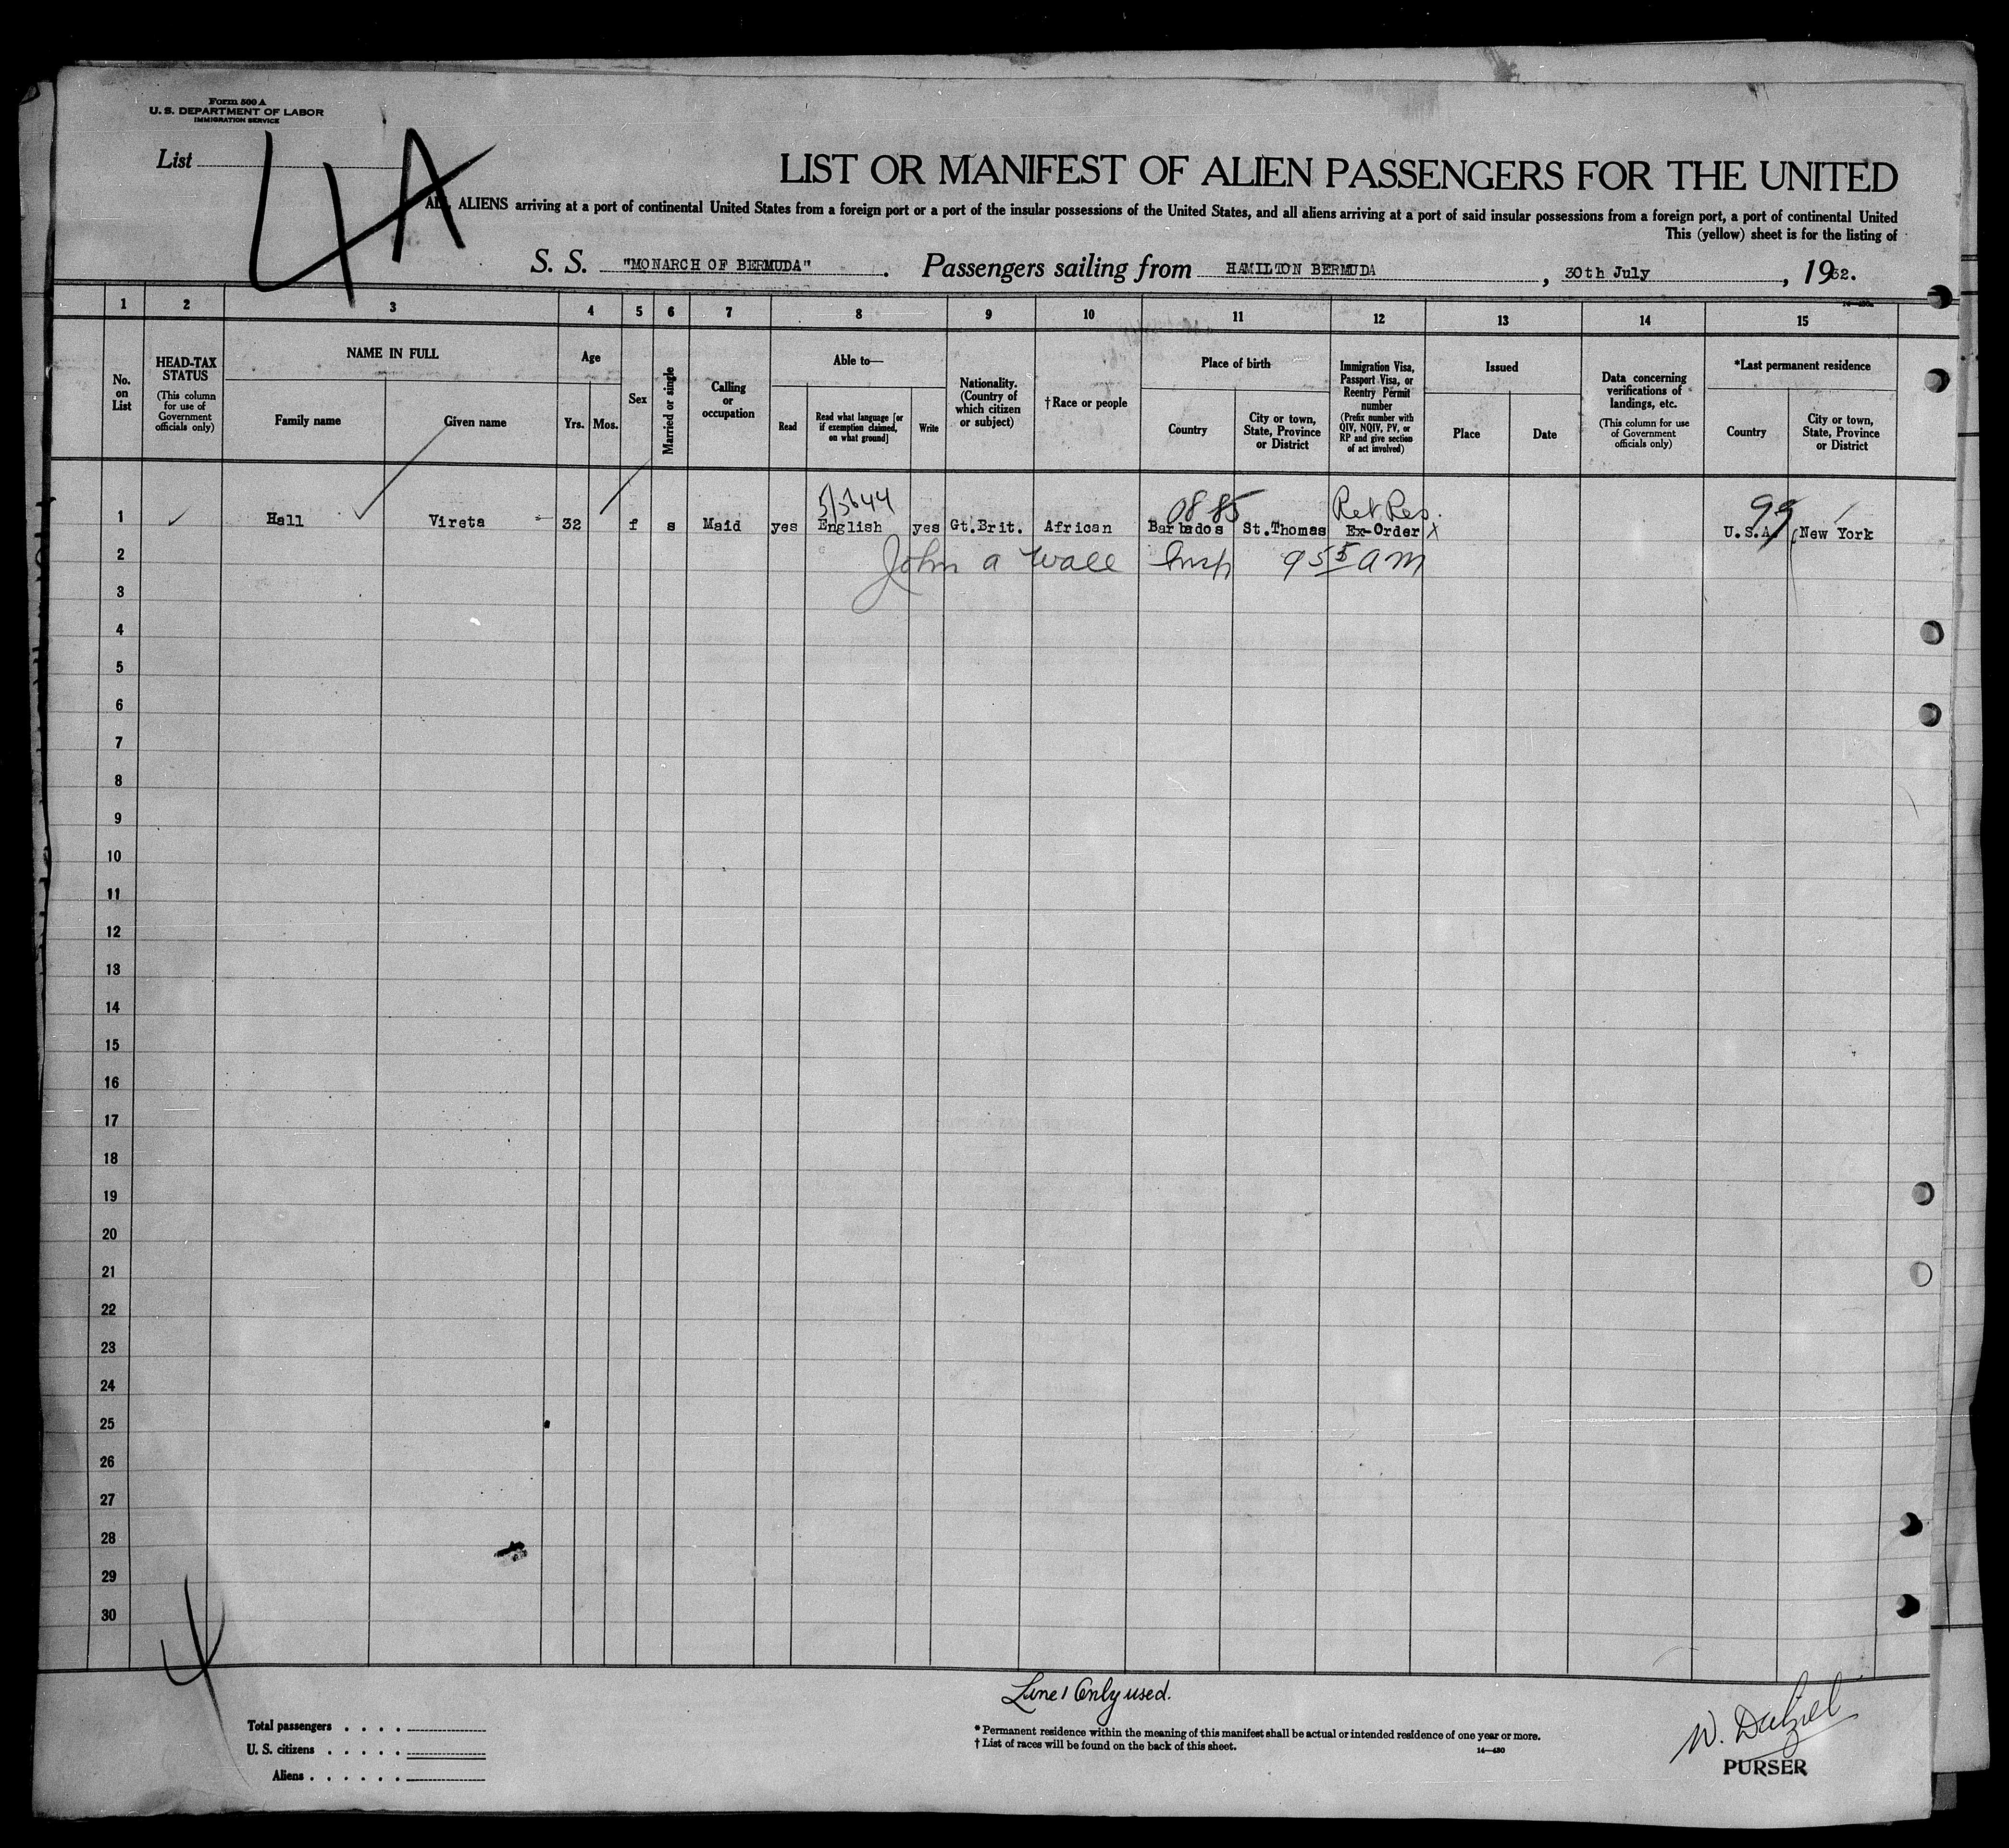 Form 500 A
U. S. DEPARTMENT OF LABOR
IMMIGRATION SERVICE
List 4A
LIST OR MANIFEST OF ALIEN PASSENGERS FOR THE UNITED
ALL ALIENS arriving at a port of continental United States from a foreign port or a port of the insular possessions of the United States, and all aliens arriving at a port of said insular possessions from a foreign port, a port of continental United
This (yellow) sheet is for the listing of
S. S. "MONARCH OF BERMUDA". Passengers sailing from HAMILTON BERMUDA, 30th July, 1932.
1 2 3 4 5 6 7 8 9 10 11 12 13 14 15
No. on List
HEAD-TAX STATUS
(This column for use of Government officials only)
NAME IN FULL
Family name
Given name
Age
Yrs. Mos.
Sex
Married or single
Calling or occupation
Able to—
Read
Read what language [or if exemption claimed, on what ground]
Write
Nationality. (Country of which citizen or subject)
†Race or people
Place of birth
Country
City or town, State, Province or District
Immigration Visa, Passport Visa, or Reentry Permit number
(Prefix number with QIV, NQIV, PV, or RP and give section of act involved)
Issued
Place
Date
Data concerning verifications of landings, etc.
(This column for use of Government officials only)
*Last permanent residence
Country
City or town, State, Province or District
0885 Ret Res. 99
1 Hall Vireta 32 f s Maid yes English yes Gt.Brit. African Barbados St.Thomas Ex-Order x U.S.A. New York
2 John A Wall Insp 9 55 am
3
4
5
6
7
8
9
10
11
12
13
14
15
16
17
18
19
20
21
22
23
24
25
26
27
28
29
30
Line 1 Only used.
Total passengers . . . .
U. S. citizens . . . . .
Aliens . . . . . .
* Permanent residence within the meaning of this manifest shall be actual or intended residence of one year or more.
† List of races will be found on the back of this sheet.
14—430
W. Dalziel
PURSER